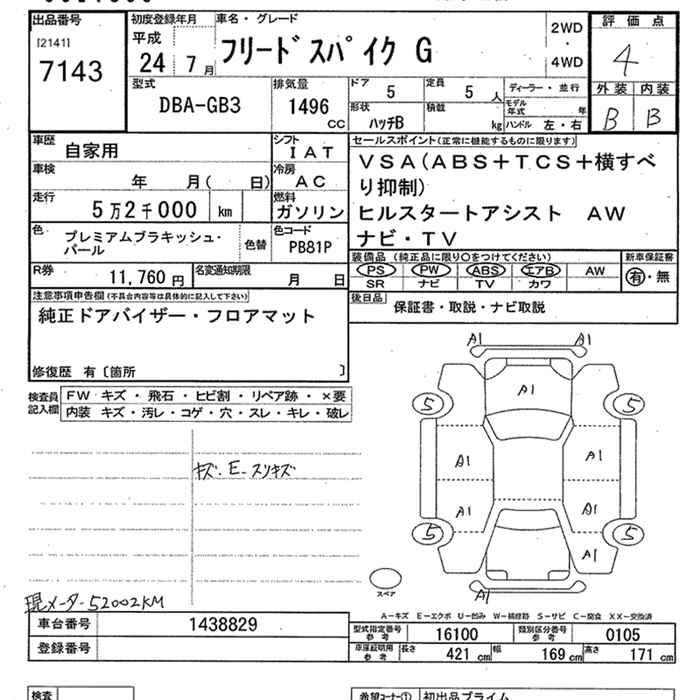 出品番号
[2141]
7143
初度登録年月
平成
24 7月
車名・グレード
フリードスパイク G
2WD
・
4WD
評価点
4
外装 内装
B B
型式
DBA-GB3
排気量
1496
CC
ドア
5
定員
5人
形状
ハッチB
積載
kg
ディーラー・並行
モデル年式 年
ハンドル 左・右
車歴
自家用
シフト
IAT
車検
年 月( 日)
冷房
AC
走行
5万2千000 km
燃料
ガソリン
色
プレミアムブラキッシュ・
パール
色替
色コード
PB81P
R券
11,760円
名変通知期限
月 日
セールスポイント(正常に機能するものに限ります)
VSA(ABS+TCS+横すべ
り抑制)
ヒルスタートアシスト AW
ナビ・TV
装備品(純正品に限り○をつけてください)
PS PW ABS エアB AW
SR ナビ TV カワ
新車保証書
有・無
後日品
保証書・取説・ナビ取説
注意事項申告欄(不具合内容等は具体的に記入して下さい)
純正ドアバイザー・フロアマット
修復歴 有〔箇所 〕
検査員
記入欄
FW キズ・飛石・ヒビ割・リペア跡・×要
内装 キズ・汚レ・コゲ・穴・スレ・キレ・破レ
キズ.E-スリキズ
現メーター52002KM
A1 A1
A1
5 5
A1 A1
A1 A1
5 5
A1
A1
スペア
A－キズ E－エクボ U－凹み W－補修跡 S－サビ C－腐食 XX－交換済
車台番号
1438829
登録番号
型式指定番号
参考
16100
類別区分番号
参考
0105
車庫証明用
参考
長さ 421cm
幅 169cm
高さ 171cm
検査
希望コーナー① 初出品プライム